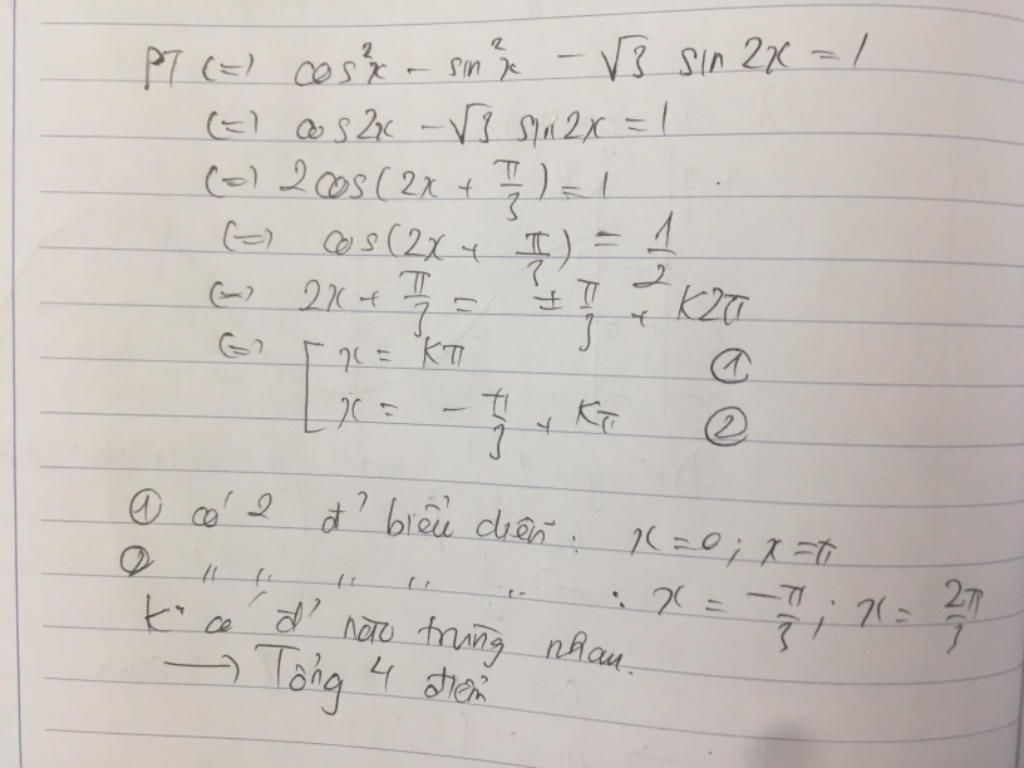 PT (=) cos²x - sin²x - √3 sin 2x = 1
(=) cos2x - √3 sin2x = 1
(=) 2cos(2x + π/3) = 1
(=) cos(2x + π/3) = 1/2
(=) 2x + π/3 = ± π/3 + K2π
(=) [ x = Kπ ①
x = - π/3 + Kπ ②
① có 2 đ' biểu diễn: x = 0; x = π
② " " " " " : x = -π/3; x = 2π/3
K° có đ' nào trùng nhau.
→ Tổng 4 điểm